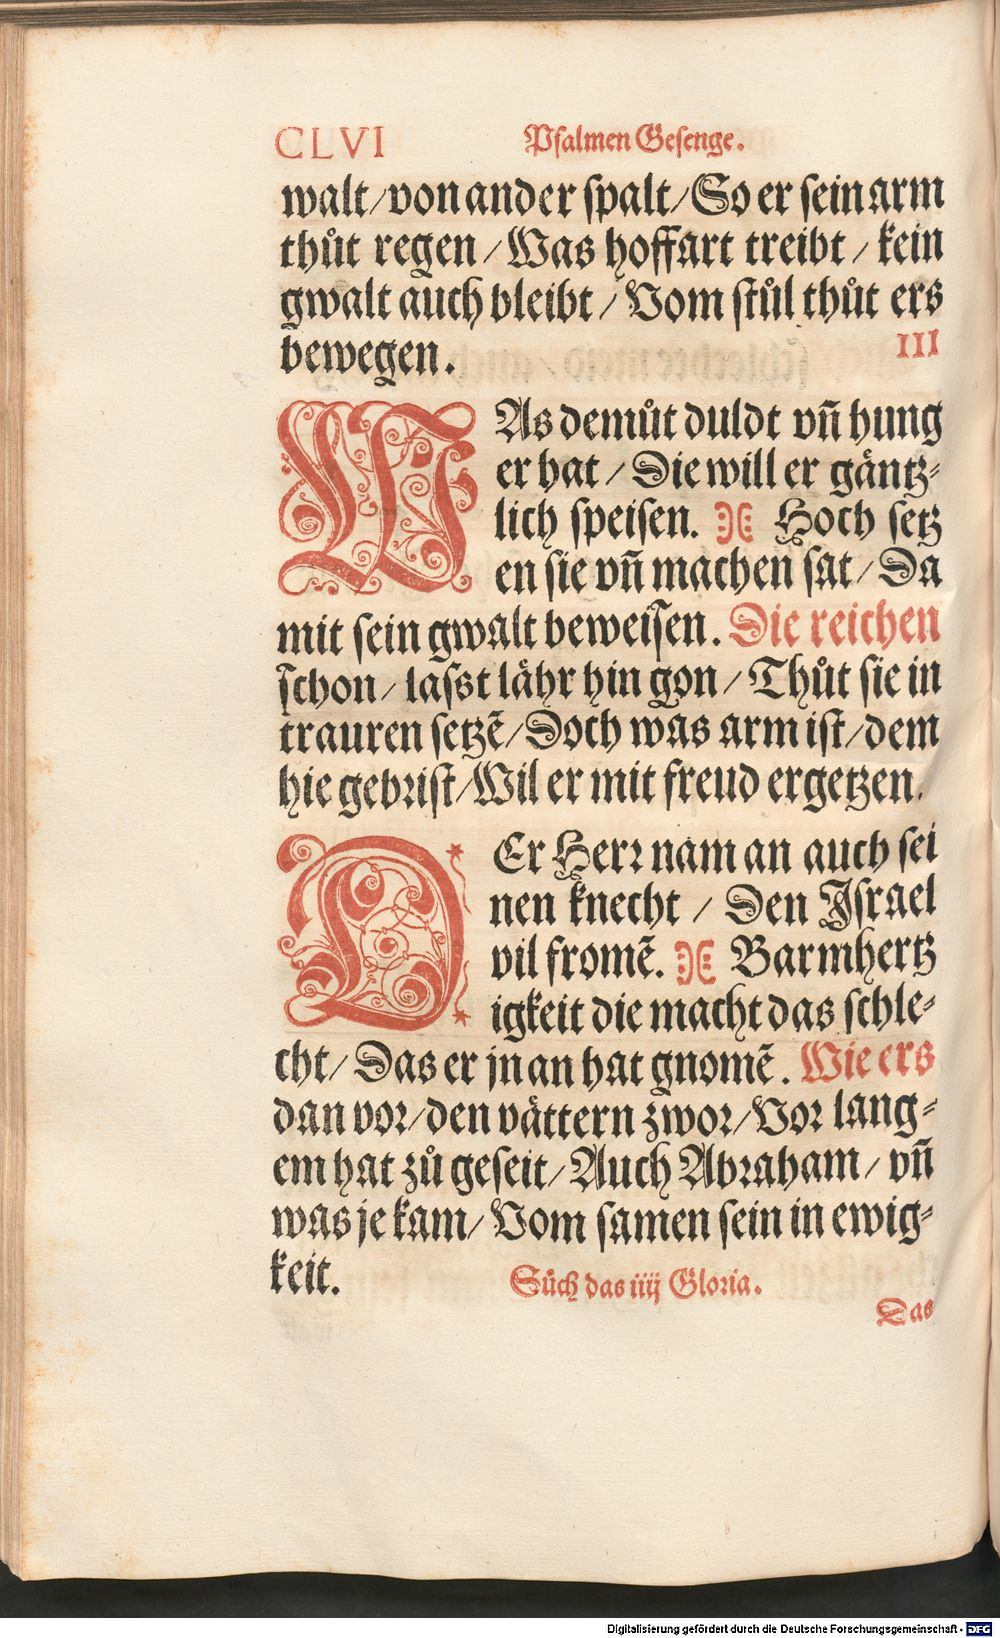 CLVI Psalmen Gesenge.
walt/von ander spalt/So er sein arm
thůt regen/Was hoffart treibt/kein
gwalt auch bleibt/Vom stůl thůt ers
bewegen. III
WAs demůt duldt vñ hung
er hat/Die will er gäntz-
lich speisen. Hoch setz
en sie vñ machen sat/Da
mit sein gwalt beweisen. Die reichen
schon/lasst lähr hin gon/Thůt sie in
trauren setzẽ/Doch was arm ist/dem
hie gebrist/Wil er mit freud ergetzen.
DEr Herr nam an auch sei
nen knecht/Den Israel
vil fromẽ. Barmhertz
igkeit die macht das schle-
cht/Das er jn an hat gnomẽ. Wie ers
dan vor/den vättern zwor/Vor lang-
em hat zů geseit/Auch Abraham/vñ
was je kam/Vom samen sein in ewig-
keit. Sůch das iiij Gloria.
Das
Digitalisierung gefördert durch die Deutsche Forschungsgemeinschaft - DFG